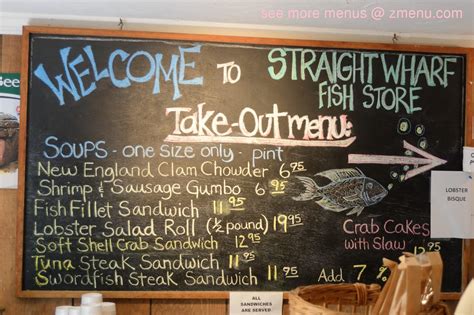 see more menus @ zmenu.com
WELCOME TO STRAIGHT WHARF
FISH STORE
Take-Out menu:
SOUPS - one size only - pint
New England Clam Chowder 6.95
Shrimp & Sausage Gumbo 6.95
Fish Fillet Sandwich 11.95
Lobster Salad Roll (½ pound) 19.95
Soft Shell Crab Sandwich 12.95
Tuna Steak Sandwich 11.95
Swordfish Steak Sandwich 11.95
Crab Cakes
with Slaw
Add 7.95
LOBSTER
BISQUE
ALL
SANDWICHES ARE
SERVED